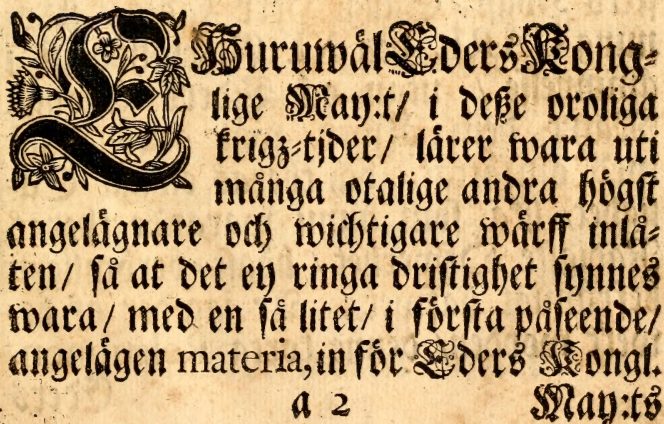 EHuruwäl Eders Kong-
lige May:t/ i deße oroliga
krigz-tjder/ lärer wara uti
många otalige andra högst
angelägnare och wichtigare wärff inlå-
ten/ så at det ey ringa dristighet synnes
wara/ med en så litet/ i första påseende/
angelägen materia, in för Eders Kongl.
a 2 May:ts